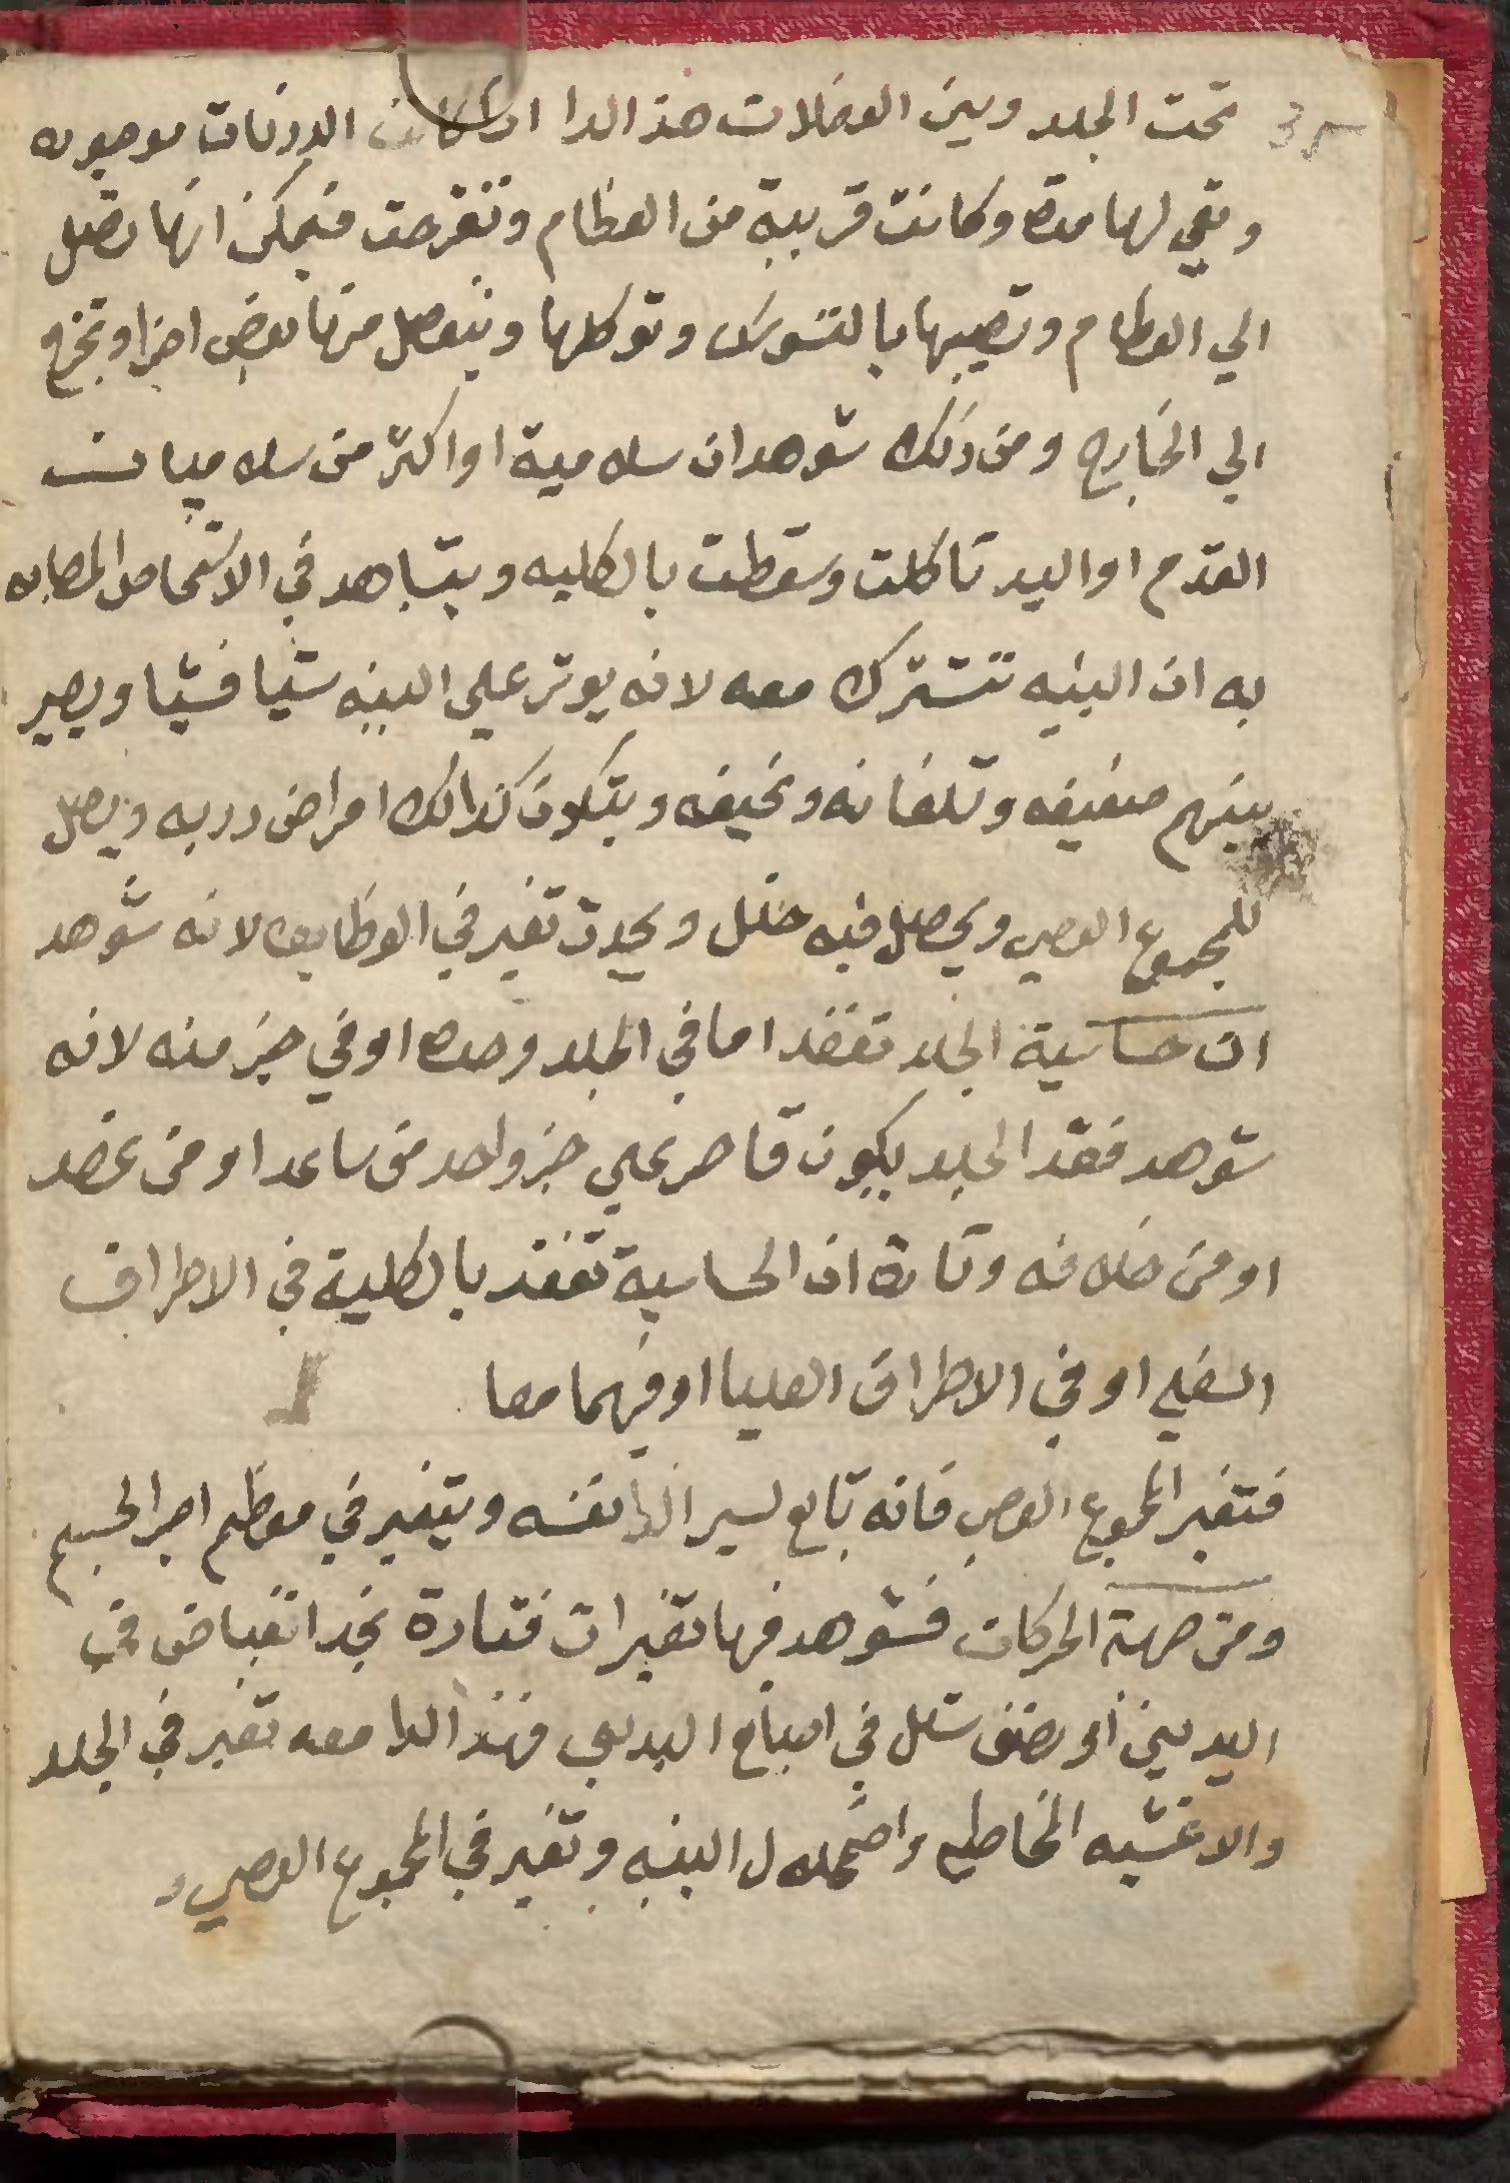 تحت الجلد وبين العضلات هذ الدا اذا كانت الدرنات موجوده
وبقي لها مدة وكانت قريبة من العظام وتقرحت فيمكن انها تصل
الي العظام وتصيبها بالتسوس وتوكلها وينفصل منها بعض اجزا وتخرج
الي الخارج ومن ذلك شوهد ان سلامية او اكثر من سلاميات
القدم او اليد تاكلت وسقطت بالكليه ويشاهد في الاشخاص المصابه
به ان البنيه تشترك معه لانه يوثر علي البنيه شيا فشيا ويصير
بنيتهم ضعيفه وتلفانه ونحيفه ويتكون كذالك امراض درنيه ويصل
للمجموع العصبي ويحصل فيه خلل ويحدث تغير في الوظايف لانه شوهد
ان حساسية الجلد تفقد اما في الجلد وحده او في جز منه لانه
شوهد فقد الجلد يكون قاصر علي جز واحد من ساعد او من عضد
او من خلافه وتارة ان الحساسية تفقد بالكلية في الاطراف
السفلي او في الاطراف العليا او فيهما معا
فتغير المجموع العصبي فانه تابع لسير الدا نفسه ويتغير في معظم اجزا الجسم
ومن جهة الحركات فشوهد فيها تغيرات فتارة نجد انقباض في
اليدين او بعض شلل في اصباع اليد فهذ الدا معه تغير في الجلد
والاغشيه المخاطيه واضمحلال البنيه وتغير في المجموع العصبي و